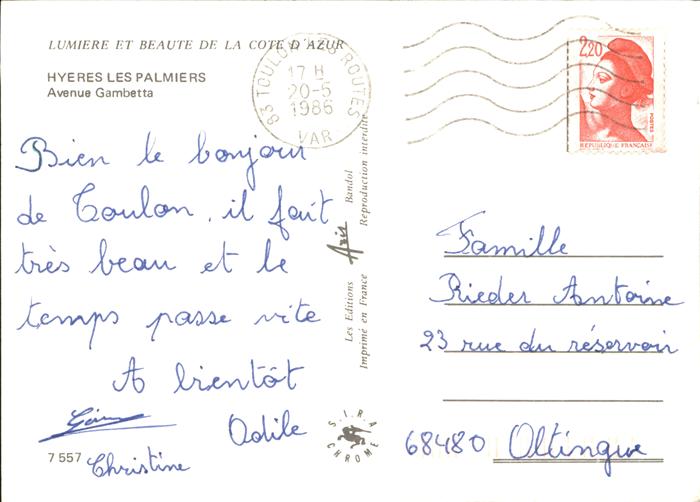 LUMIERE ET BEAUTE DE LA COTE D'AZUR
HYERES LES PALMIERS
Avenue Gambetta
83 TOULON ROUTES
17 H
20-5
1986
VAR
2,20
POSTES
REPUBLIQUE FRANÇAISE
Bien le bonjour
de Toulon, il fait
très beau et le
temps passe vite
A bientôt
Odile
Christine
7 557
Les Editions Aris Bandol
Imprimé en France Reproduction interdite
S.I.R.A.
CHROME
Famille
Rieder Antoine
23 rue du réservoir
68480 Oltingue